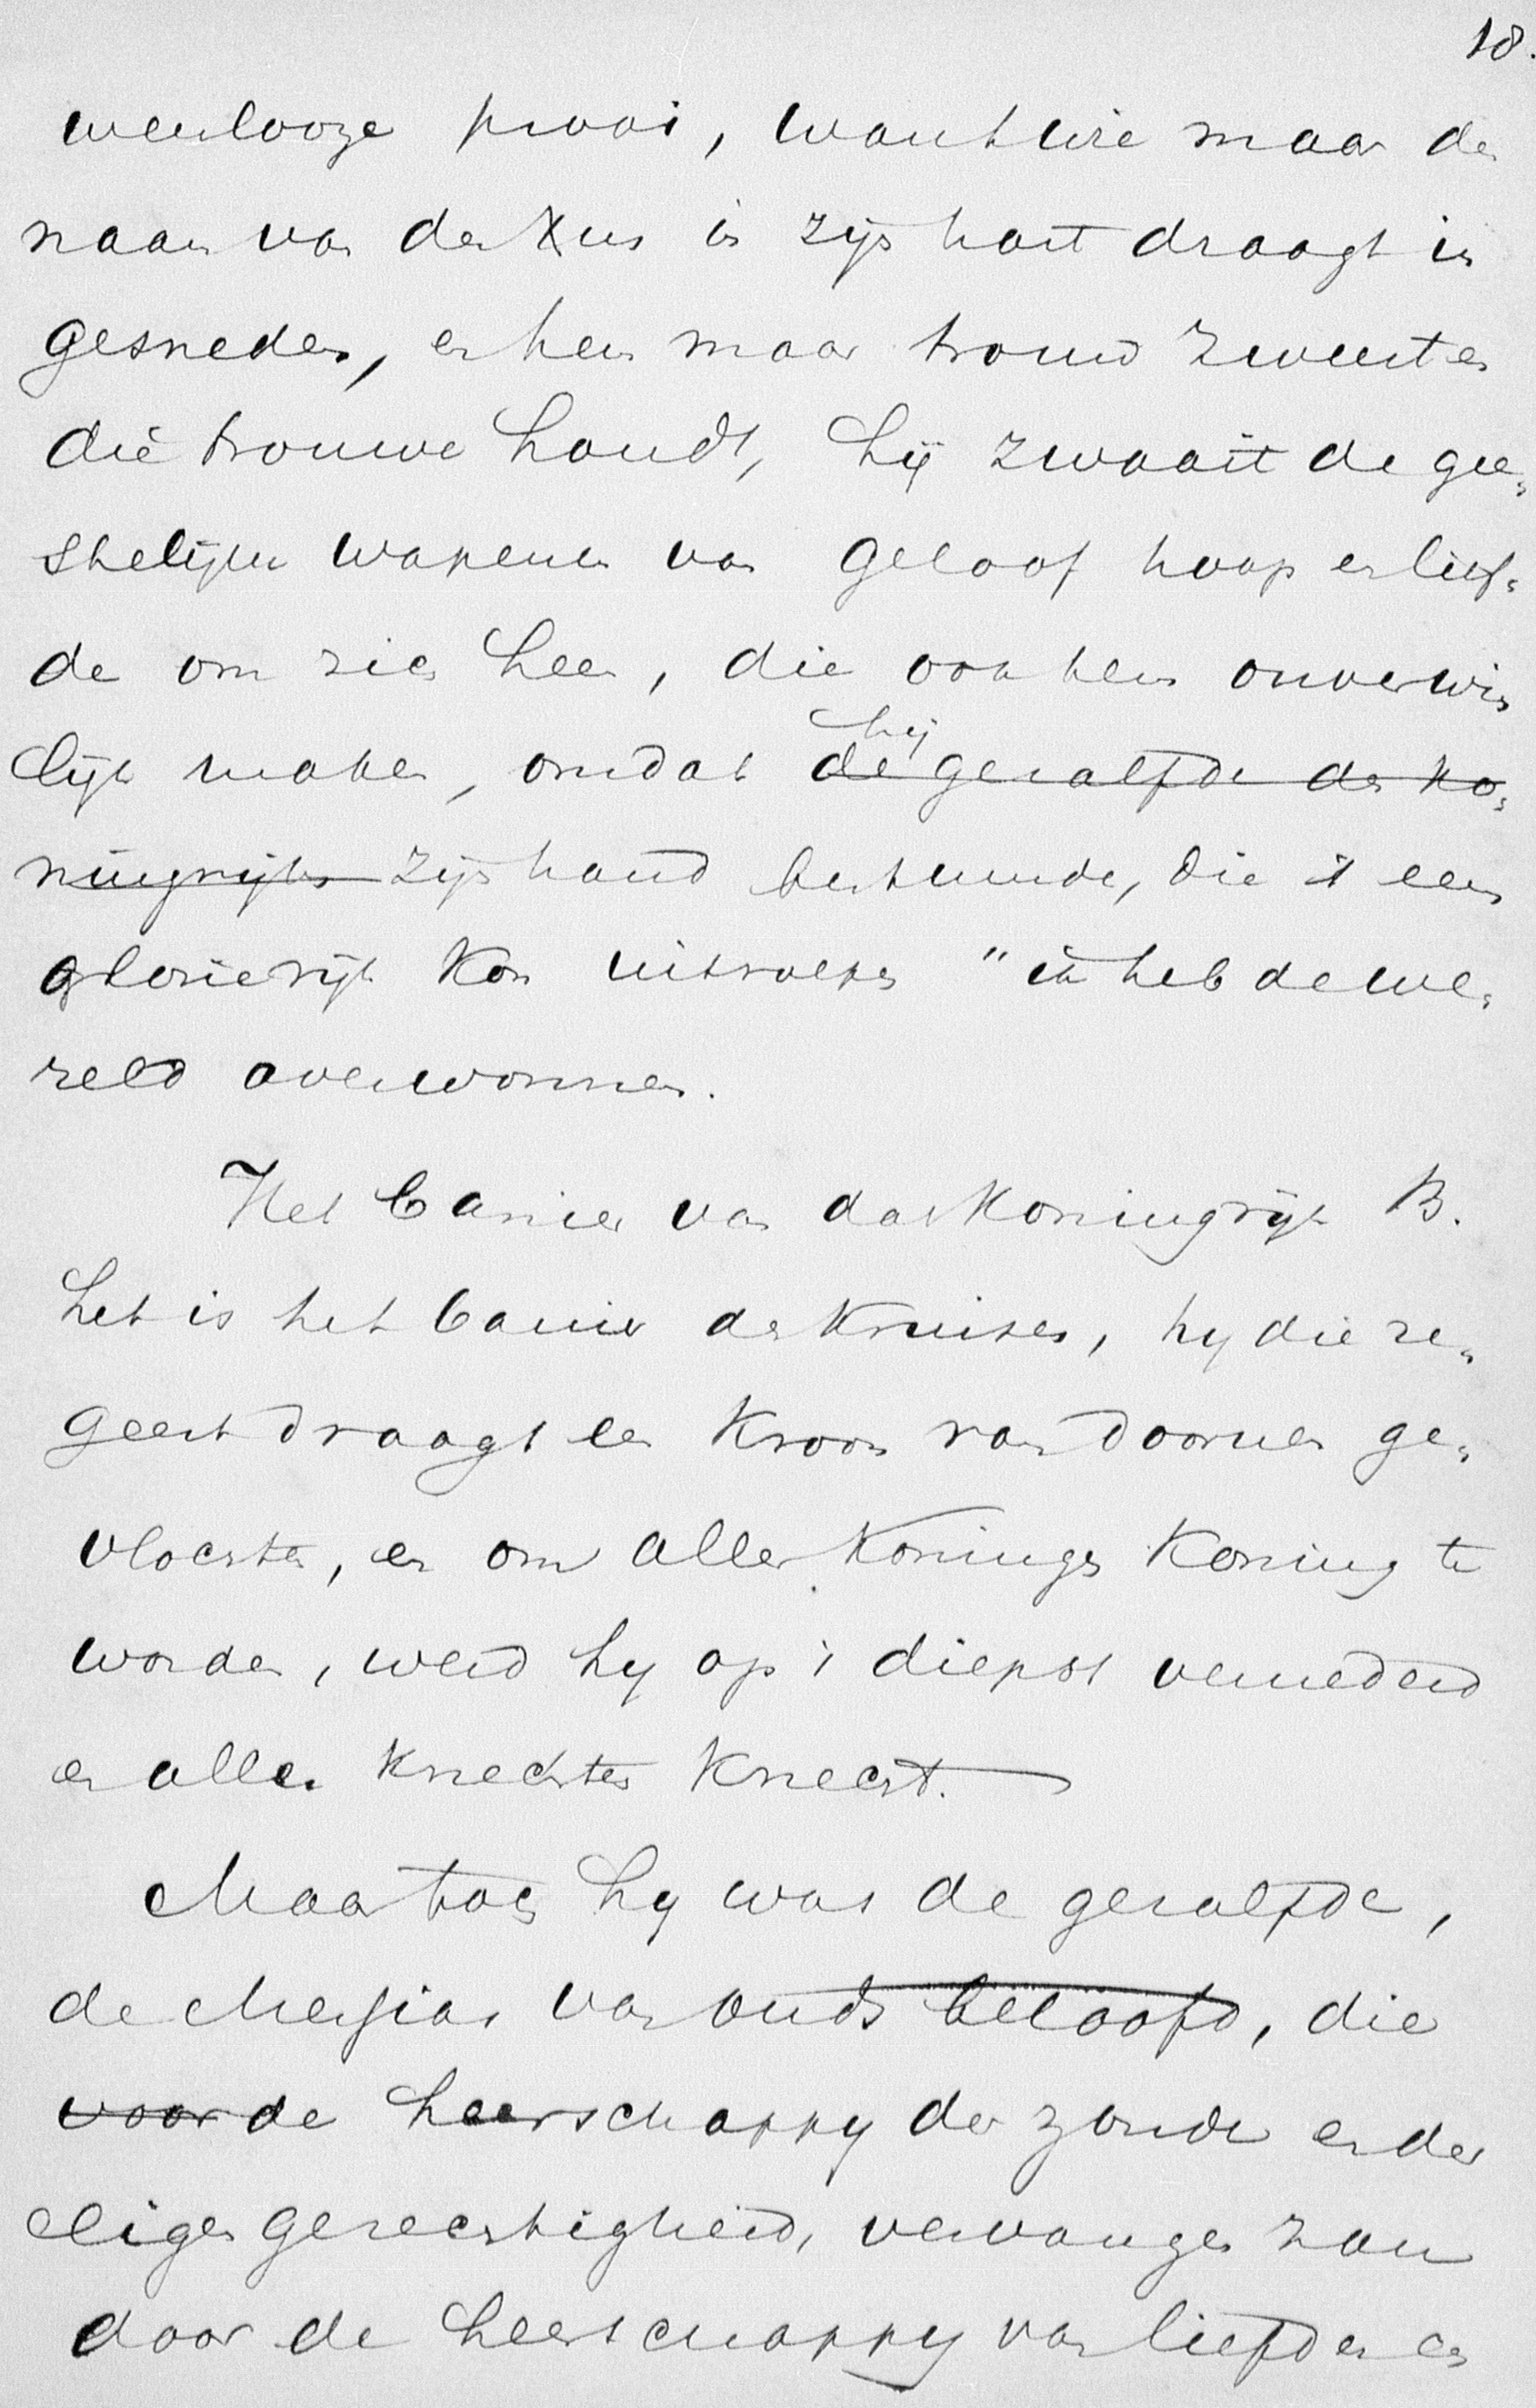 18.
weerlooze prooi, want wie maar de
naam van den Xus in zijn hart draagt in
gesneden, en hem maar trouw zweert en
die trouwe houdt, hij zwaait de gee„
stelijke wapenen van geloof hoop en lief„
de om zich heen, die ook hem onverwin
lijk maken, omdat hij de gezalfde des ko„
ningrijks zijn hand bestuurde, die 't eens
glorierijk kon uitroepen "ik heb de we„
reld overwonnen.
Het banier van dat Koningrijk B.
het is het banier des Kruises, hy die re„
geert draagt een Kroon van doornen ge„
vlochten, en om aller Konings Koning te
worden, werd hy op 't diepst vernederd
en aller Knechten Knecht.
Maar toch hy was de gezalfde,
de Messias van ouds beloofd, die
voor de heerschappy der zonde en der
eigen gerechtigheid, vervangen zou
door de heerschappy van liefde en